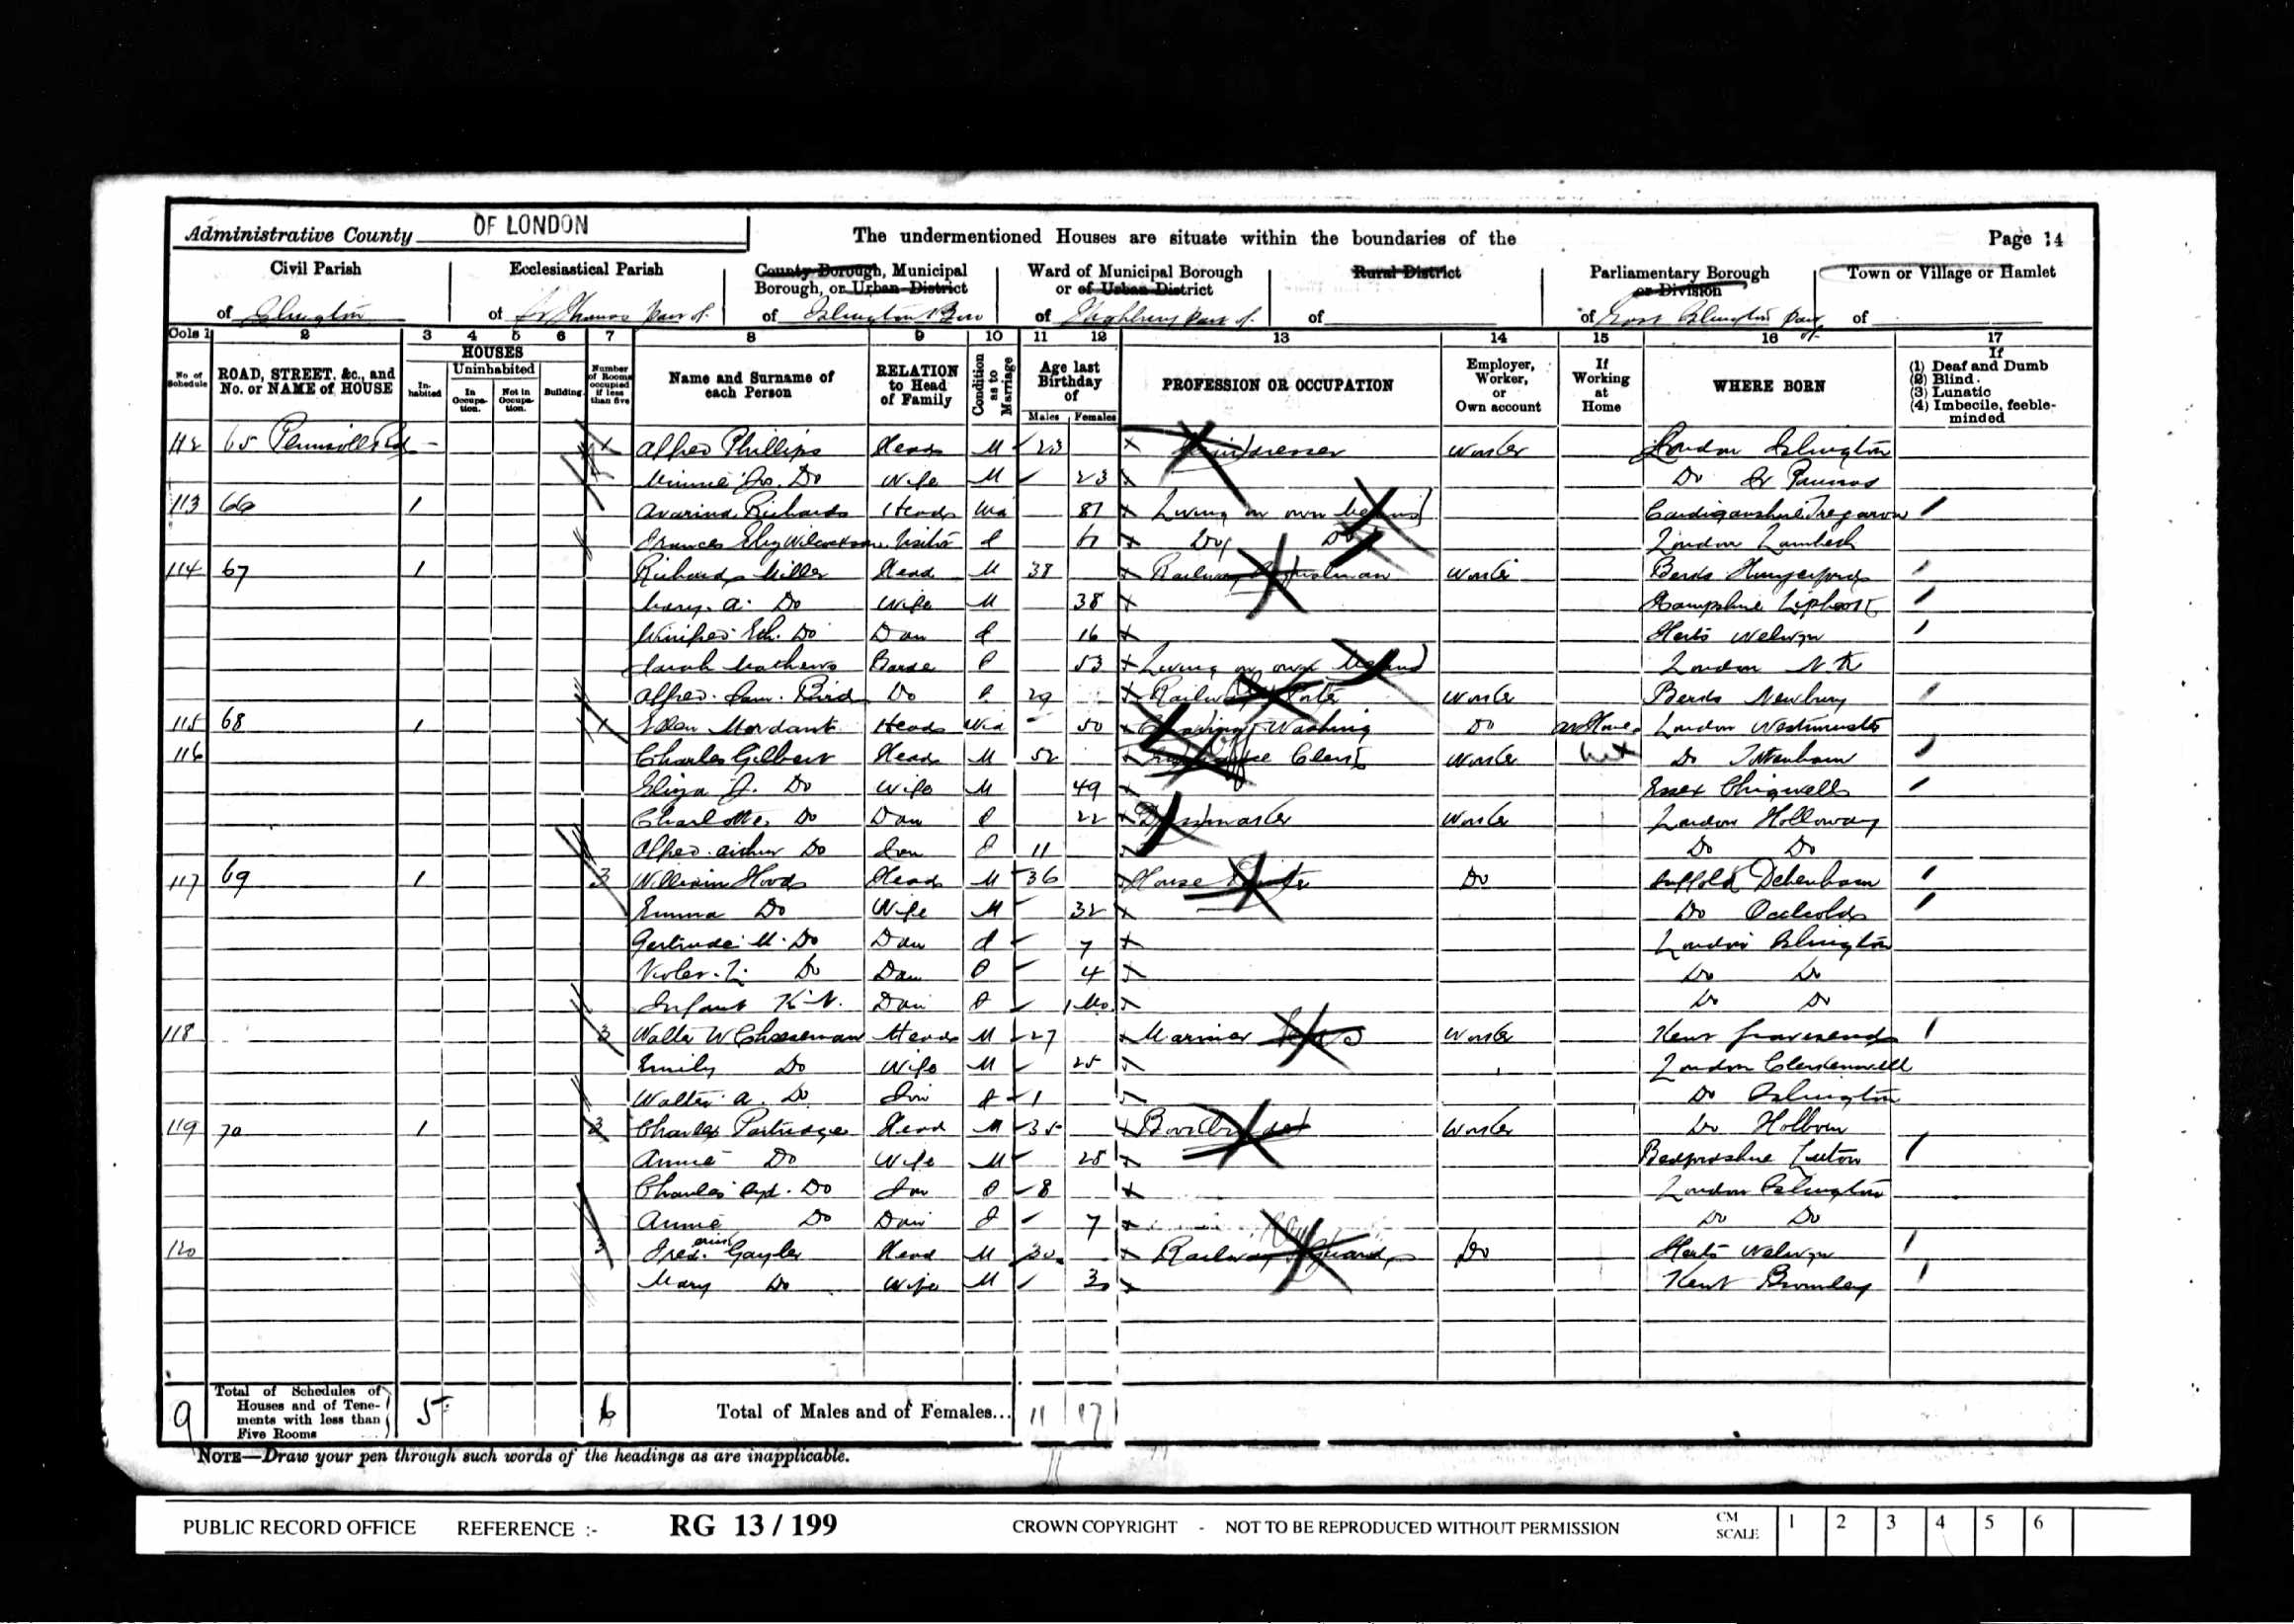 Administrative County OF LONDON
The undermentioned Houses are situate within the boundaries of the
Page 14
Civil Parish of Islington
Ecclesiastical Parish of St Thomas part of
County Borough, Municipal Borough, or Urban District of Islington Boro
Ward of Municipal Borough or of Urban District of Highbury part of
Rural District of
Parliamentary Borough or Division of East Islington part of
Town or Village or Hamlet of
Cols 1 2 3 4 5 6 7 8 9 10 11 12 13 14 15 16 17
No of Schedule
ROAD, STREET, &c., and No. or NAME of HOUSE
HOUSES
Inhabited
Uninhabited
In Occupation.
Not in Occupation.
Building
Number of Rooms occupied if less than five
Name and Surname of each Person
RELATION to Head of Family
Condition as to Marriage
Age last Birthday of
Males Females
PROFESSION OR OCCUPATION
Employer, Worker, or Own account
If Working at Home
WHERE BORN
If
(1) Deaf and Dumb
(2) Blind
(3) Lunatic
(4) Imbecile, feeble-minded
112 65 Alfred Phillips Head M 23 Worker London Islington
Minnie Do Wife M 23 Do St Pancras
113 66 1 Avarina Richards Head Wid 81 Living on own Means Cardiganshire Tregaron
Frances Eliz Wilcockson Visitor S 61 Do Do London Lambeth
114 67 1 Richard Miller Head M 38 Railway Signalman Worker Berks Hungerford
Mary. A. Do Wife M 38 Hampshire Liphook
Winifred Eth. Do Dau S 16 Herts Welwyn
Sarah Mathews Boarder S 53 Living on own Means London N.K
Alfred. Bird Do S 29 Railway Porter Worker Berks Newbury
115 68 1 1 Ellen Mordant Head Wid 50 Washing Do at Home London Westminster
116 Charles Gilbert Head M 52 Clerk Worker Do Tottenham
Eliza J. Do Wife M 49 Essex Chigwell
Charlotte Do Dau S 22 Dressmaker Worker London Holloway
Alfred Arthur Do Son S 11 Do Do
117 69 1 3 William Hood Head M 36 House Painter Do Suffolk Debenham
Emma Do Wife M 32 Do Occold
Gertrude M. Do Dau S 7 London Islington
Violet. L. Do Dau S 4 Do Do
Infant N.K. Dau S 1 Mo. Do Do
118 3 Walter W Cheeseman Head M 27 Mariner Worker Kent Gravesend
Emily Do Wife M 25 London Clerkenwell
Walter A. Do Son S 1 Do Islington
119 70 1 3 Charles Partridge Head M 35 Bookbinder Worker Do Holborn
Annie Do Wife M 28 Bedfordshire Luton
Charles Syd. Do Son S 8 London Islington
Annie Do Dau S 7 Do Do
120 3 Fred. Gayler Head M 30 Railway Guard Do Herts Welwyn
Mary Do Wife M 30 Kent Bromley
9 Total of Schedules of Houses and of Tenements with less than Five Rooms 5 6 Total of Males and of Females... 11 17
NOTE—Draw your pen through such words of the headings as are inapplicable.
PUBLIC RECORD OFFICE REFERENCE :- RG 13 / 199 CROWN COPYRIGHT - NOT TO BE REPRODUCED WITHOUT PERMISSION CM SCALE 1 2 3 4 5 6